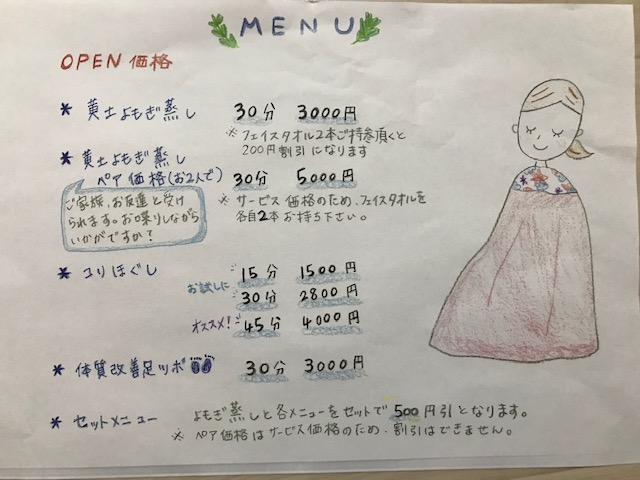 MENU
OPEN 価格
* 黄土よもぎ蒸し 30分 3000円
※フェイスタオル2本ご持参頂くと
200円割引になります
* 黄土よもぎ蒸し
ペア価格(お2人で) 30分 5000円
※サービス価格のため、フェイスタオルを
各自2本お持ち下さい。
ご家族、お友達と受け
られます。お喋りしながら
いかがですか?
* コリほぐし 15分 1500円
お試しに 30分 2800円
オススメ! 45分 4000円
* 体質改善足ツボ 30分 3000円
* セットメニュー よもぎ蒸しと各メニューをセットで500円引となります。
※ペア価格はサービス価格のため、割引はできません。